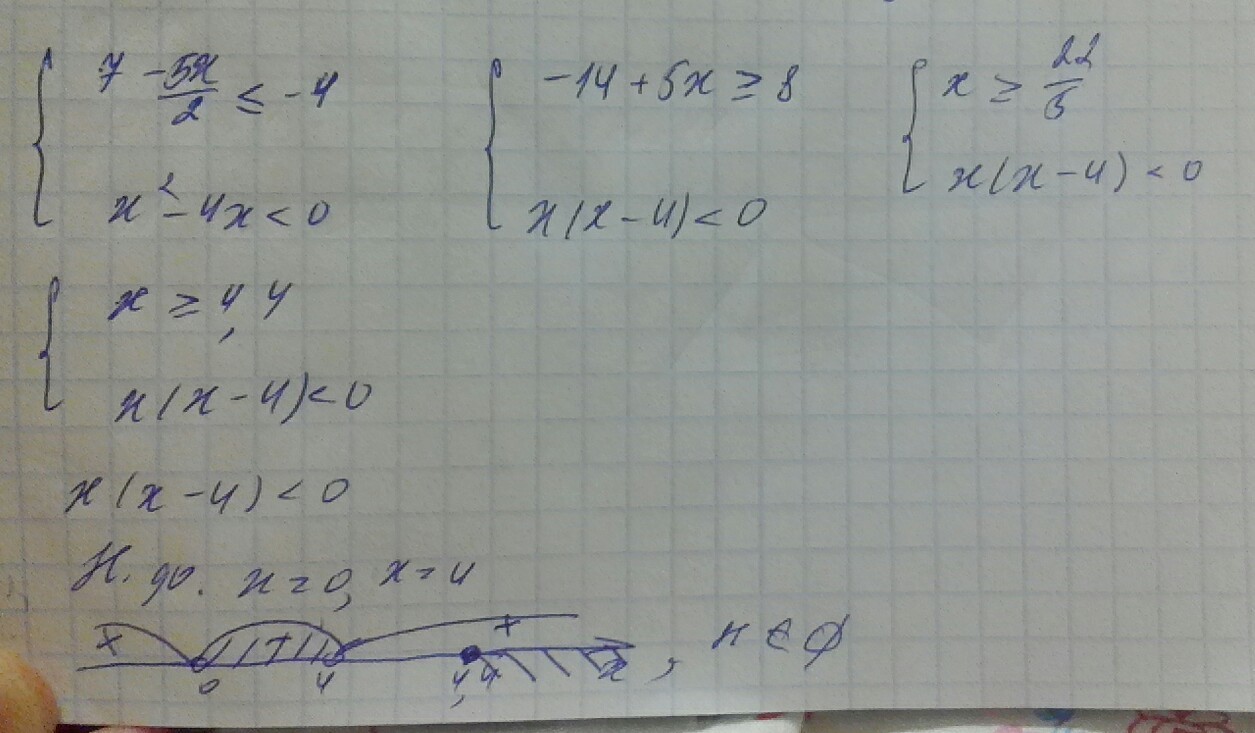 { 7 - 5x/2 ≤ -4
{ x² - 4x < 0
{ -14 + 5x ≥ 8
{ x(x-4) < 0
{ x ≥ 22/5
{ x(x-4) < 0
{ x ≥ 4,4
{ x(x-4) < 0
x(x-4) < 0
Н. ф. x = 0, x = 4
+ + +
0 4 4,4 x , x ∈ ∅